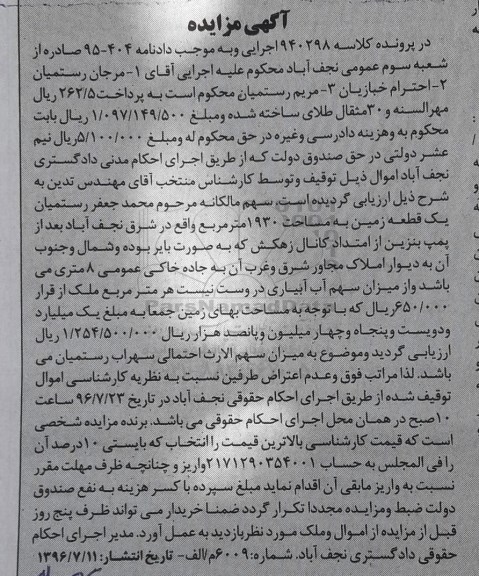 آگهی مزایده
در پرونده کلاسه ۹۴۰۲۹۸ اجرایی وبه موجب دادنامه ۴۰۴-۹۵ صادره از
شعبه سوم عمومی نجف آباد محکوم علیه اجرایی آقای ۱-مرجان رستمیان
۲-احترام خبازیان ۳-مریم رستمیان محکوم است به پرداخت۲۶۲/۵ ریال
مهرالسنه و ۳۰مثقال طلای ساخته شده ومبلغ ۱/۰۹۷/۱۴۹/۵۰۰ ریال بابت
محکوم به وهزینه دادرسی وغیره در حق محکوم له ومبلغ ۵/۱۰۰/۰۰۰ریال نیم
عشر دولتی در حق صندوق دولت که از طریق اجرای احکام مدنی دادگستری
نجف آباد اموال ذیل توقیف وتوسط کارشناس منتخب آقای مهندس تدین به
شرح ذیل ارزیابی گردیده است. سهم مالکانه مرحوم محمد جعفر رستمیان
یک قطعه زمین به مساحت ۱۹۳۰مترمربع واقع در شرق نجف آباد بعد از
پمپ بنزین از امتداد کانال زهکش که به صورت بایر بوده وشمال وجنوب
آن به دیوار املاک مجاور شرق وغرب آن به جاده خاکی عمومی ۸متری می
باشد واز میزان سهم آب آبیاری در وست نیست هر متر مربع ملک از قرار
۶۵۰/۰۰۰ریال که با توجه به مساحت بهای زمین جمعا به مبلغ یک میلیارد
ودویست و پنجاه وچهار میلیون و پانصد هزار ریال ۱/۲۵۴/۵۰۰/۰۰۰ ریال
ارزیابی گردید وموضوع به میزان سهم الارث احتمالی سهراب رستمیان می
باشد. لذا مراتب فوق وعدم اعتراض طرفین نسبت به نظریه کارشناسی اموال
توقیف شده از طریق اجرای احکام حقوقی نجف آباد در تاریخ ۹۶/۷/۲۳ ساعت
۱۰صبح در همان محل اجرای احکام حقوقی می باشد. برنده مزایده شخصی
است که قیمت کارشناسی بالاترین قیمت را انتخاب که بایستی ۱۰درصد آن
را فی المجلس به حساب ۲۱۷۱۲۹۰۳۵۴۰۰۱واریز و چنانچه ظرف مهلت مقرر
نسبت به واریز مابقی آن اقدام نماید مبلغ سپرده با کسر هزینه به نفع صندوق
دولت ضبط ومزایده مجددا تکرار گردد ضمنا خریدار می تواند ظرف پنج روز
قبل از مزایده از اموال وملک مورد نظر بازدید به عمل آورد. مدیر اجرای احکام
حقوقی دادگستری نجف آباد. شماره: ۶۰۰۹م/الف- تاریخ انتشار: ۱۳۹۶/۷/۱۱
ParsNamadData